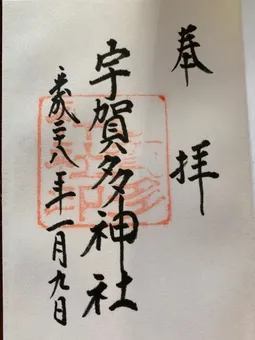 奉拝
宇賀多神社
平成二十八年一月九日